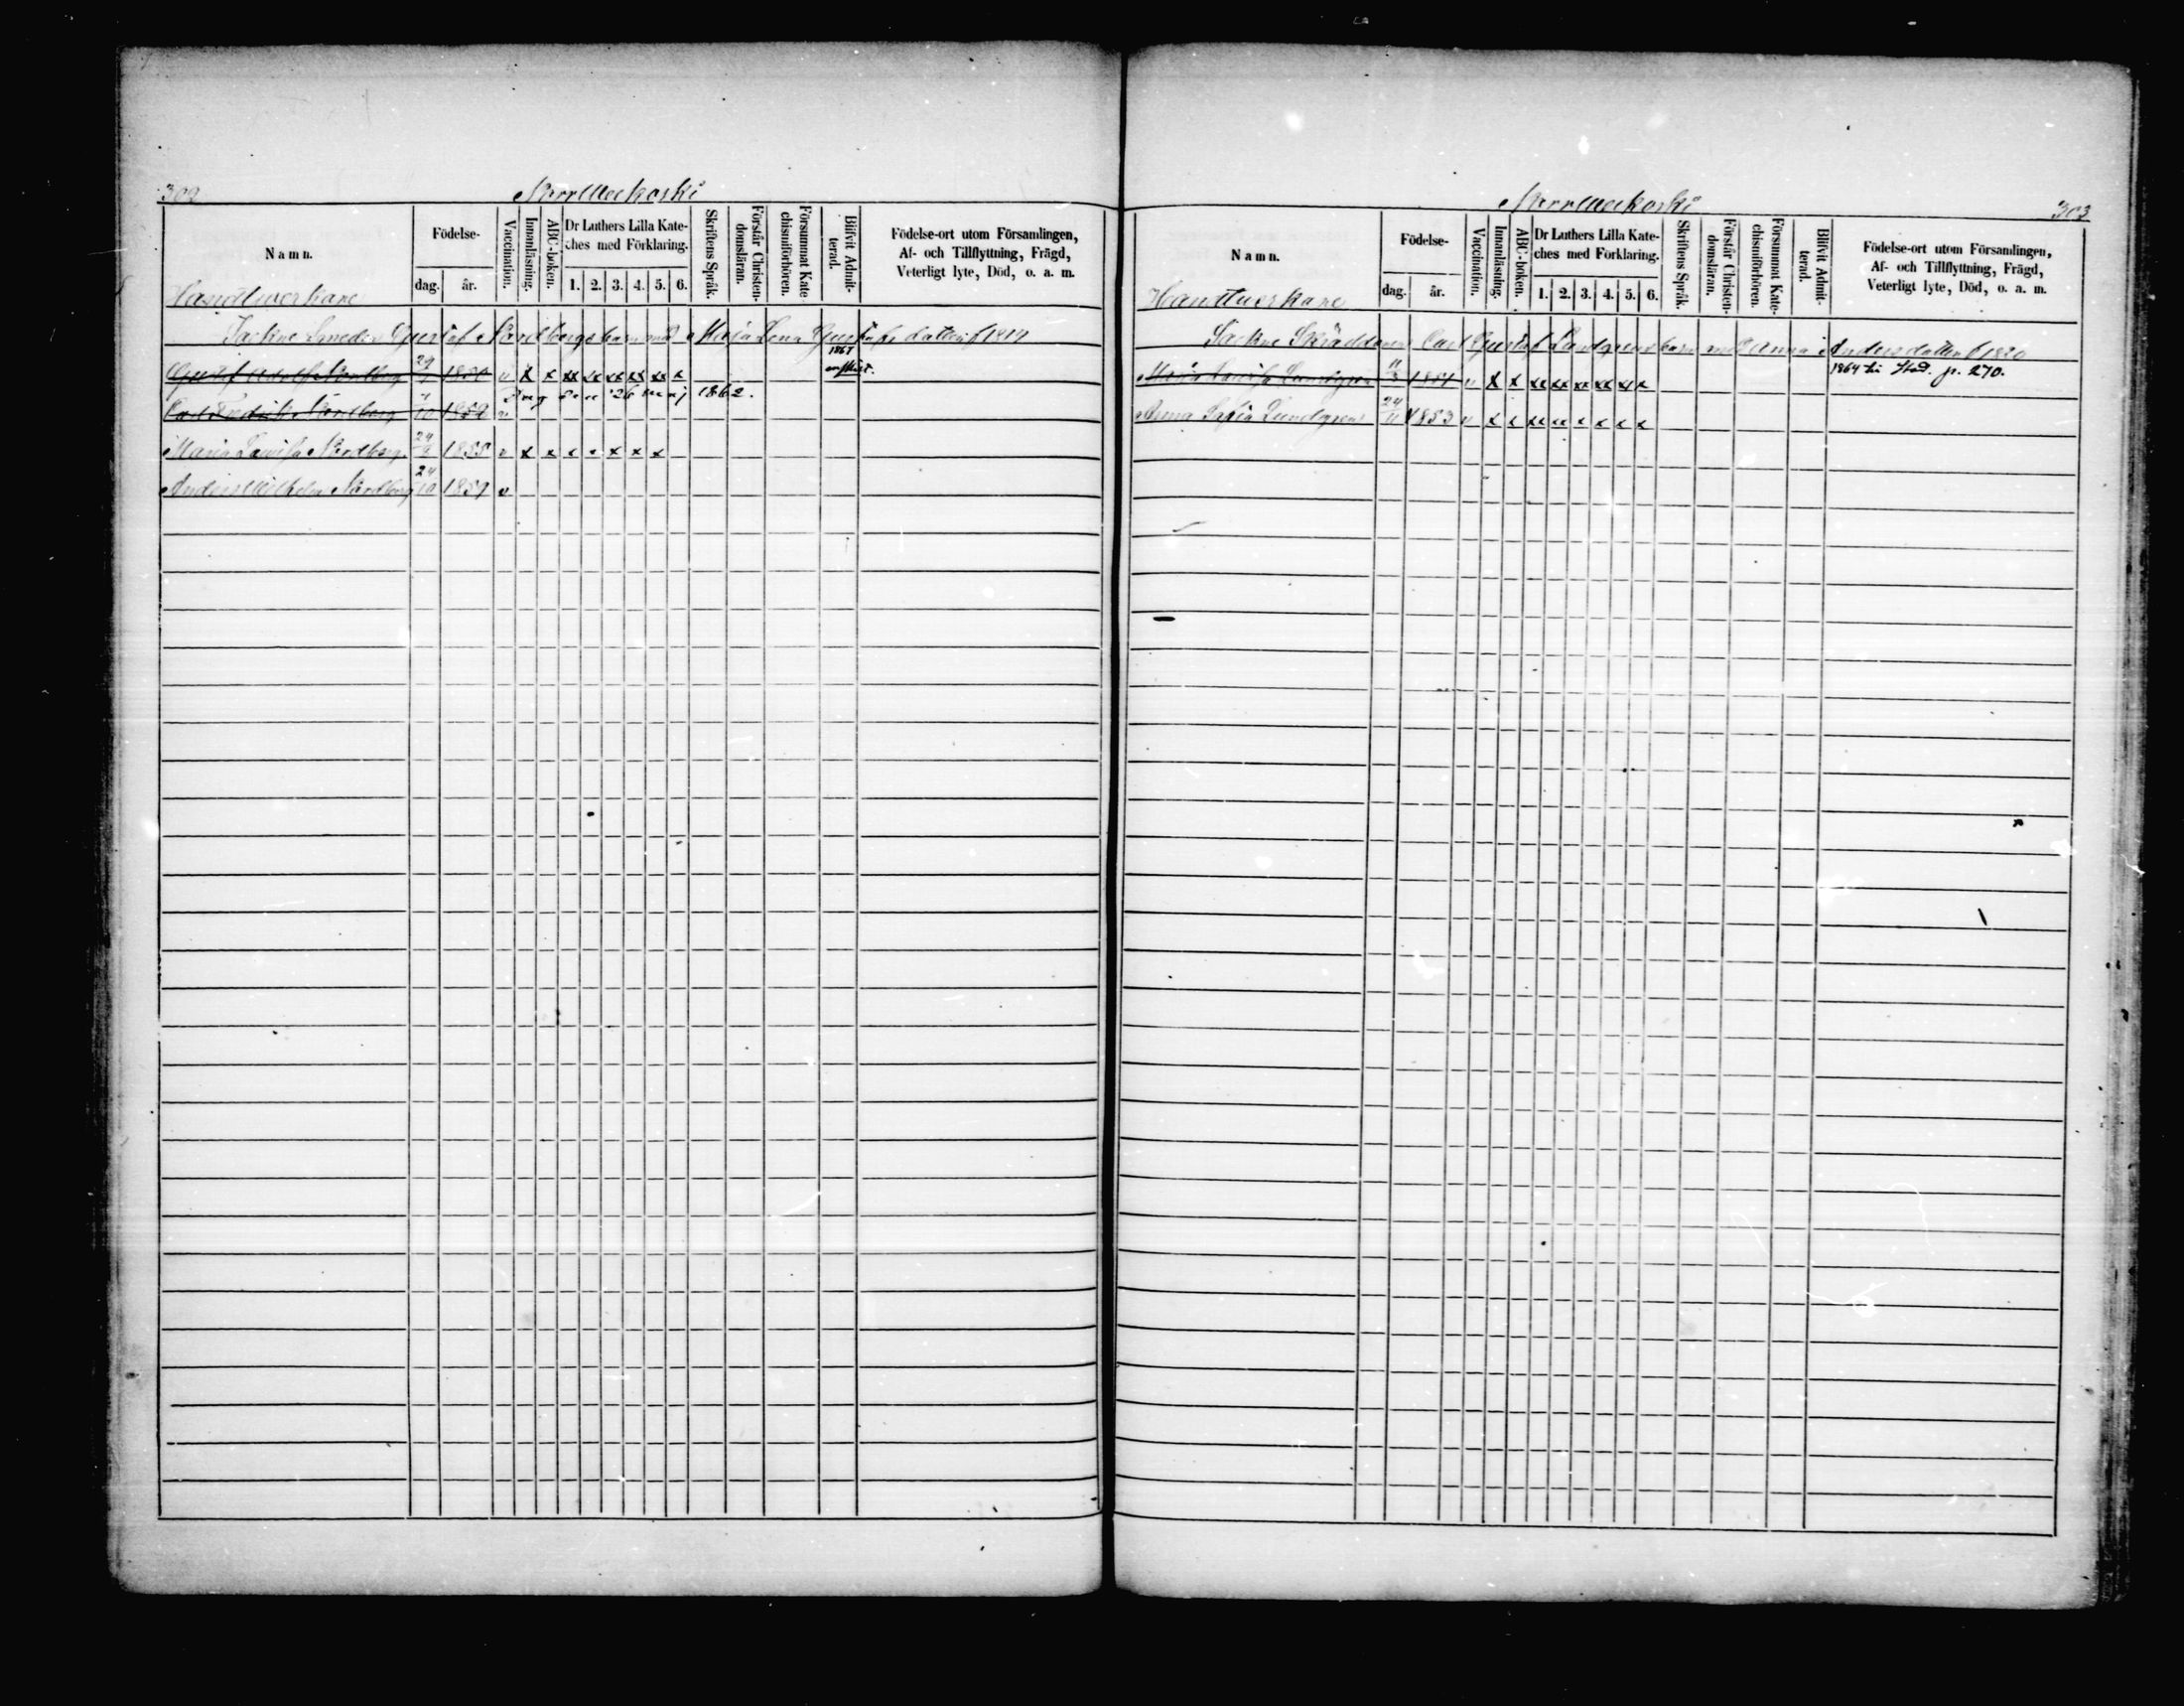 302
Norrweckoski
Namn.
Födelse-
dag.
år.
Vaccination.
Innanläsning.
ABC-boken.
Dr Luthers Lilla Kate-
ches med Förklaring.
1. 2. 3. 4. 5. 6.
Skriftens Språk.
Förstår Christen-
domsläran.
Försummat Kate
chismiförhören.
Blifvit Admit-
terad.
Födelse-ort utom Församlingen,
Af- och Tillflyttning, Frägd,
Veterligt lyte, Död, o. a. m.
Handtverkare
Sockne Smeden Gustaf Nordbergs barn med Maja Lena Gustafs dotter f 1814
Gustaf Adolf Nordberg 1850 v x x xx xx xx xx xx x 1867
Carl Fredrik Nordberg 10 v Dog den 26 maj 1862.
Maria Lovisa Nordberg 24 1855 v x x x x x x x
Anders Wilhelm Nordberg 24/10 1859 v
Norrweckoski
303
Namn.
Födelse-
dag.
år.
Vaccination.
Innanläsning.
ABC-boken.
Dr Luthers Lilla Kate-
ches med Förklaring.
1. 2. 3. 4. 5. 6.
Skriftens Språk.
Förstår Christen-
domsläran.
Försummat Kate-
chismiförhören.
Blifvit Admit-
terad.
Födelse-ort utom Församlingen,
Af- och Tillflyttning, Frägd,
Veterligt lyte, Död, o. a. m.
Handtverkare
Sockne Skräddaren Carl Gustaf Lundgrens barn med Anna Andersdotter f 1820
Maria Lovisa Lundgren 1851 v x x xx xx xx xx xx x 1864 p. 270.
Anna Sofia Lundgren 24/11 1853 v x x xx xx x x x x